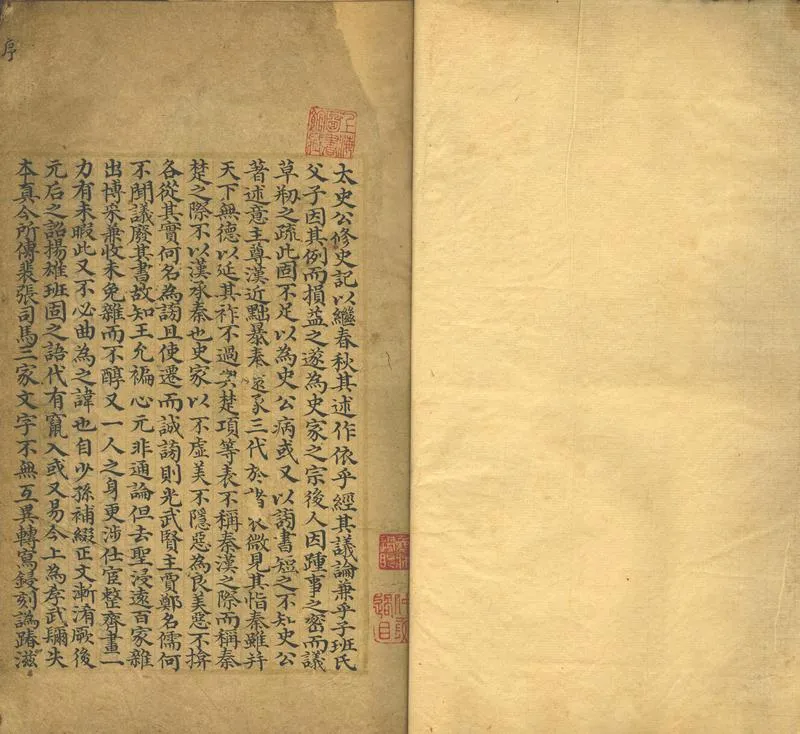 序
上海圖書館藏
太史公修史記以繼春秋其述作依乎經其議論兼乎子班氏
父子因其例而損益之遂為史家之宗後人因踵事之密而議
草刱之疏此固不足以為史公病或又以謗書短之不知史公
著述意主尊漢近黜暴秦遠承三代於諸表微見其恉秦雖并
天下無德以延其祚不過與楚項等表不稱秦漢之際而稱秦
楚之際不以漢承秦也史家以不虛美不隱惡為良美惡不揜
各從其實何名為謗且使遷而誠謗則光武賢主賈鄭名儒何
不聞議廢其書故知王允褊心元非通論但去聖浸遠百家雜
出博采兼收未免雜而不醇又一人之身更涉仕宦整齊畫一
力有未暇此又不必曲為之諱也自少孫補綴正文漸淆厥後
元后之詔揚雄班固之語代有竄入或又易今上為孝武彌失
本真今所傳裴張司馬三家文字不無互異轉寫鋟刻譌踳滋